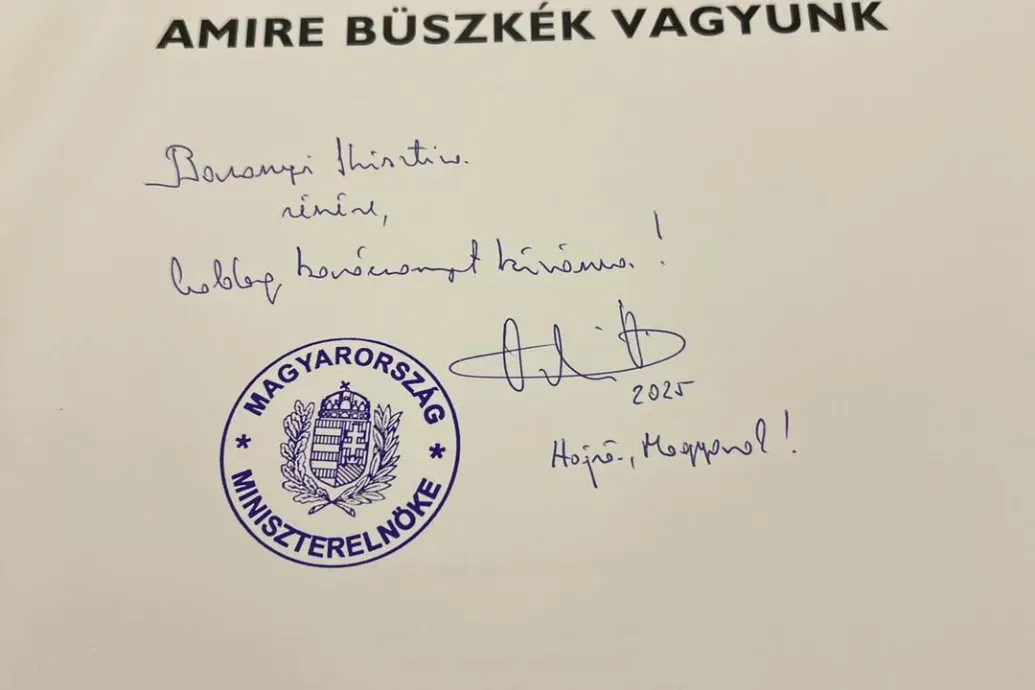 AMIRE BÜSZKÉK VAGYUNK
Baranyi Krisztina
részére,
boldog karácsonyt kívánva!
2025
Hajrá, Magyarok!
MAGYARORSZÁG
* *
MINISZTERELNÖKE